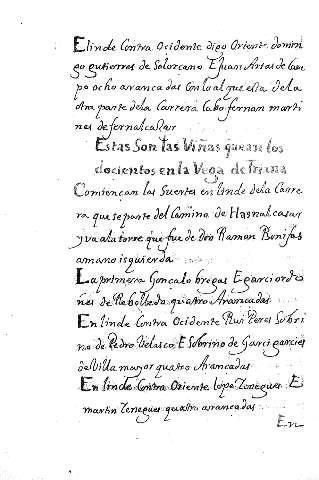 Elinde Contra Ocidente digo Oriente domin
go gutierres de Solorcano E Juan Arias de Cam
po ocho arrancadas Con lo al que esta dela
otra parte dela Carrera Cabo fernan marti
nes de fernalcasar
Estas Son las Viñas que an los
docientos en la Vega de Triana
Comiencan las Suertes en linde dela Carre
ra que se parte del Camino de Hasnalcasar
y va ala torre que fue de don Ramon Bonifas
amano isquierda
La primera Goncalo bregas E garci ordo
nes de Rebolledo quatro Arancadas
En linde Contra Ocidente Rui Peres Sobri
no de Pedro Velasco E Sobrino de Garci garcies
de Villa mayor quatro Arancadas
En linde Contra Oriente lope Tenegues E
martin Tenegues quatro arrancadas
En